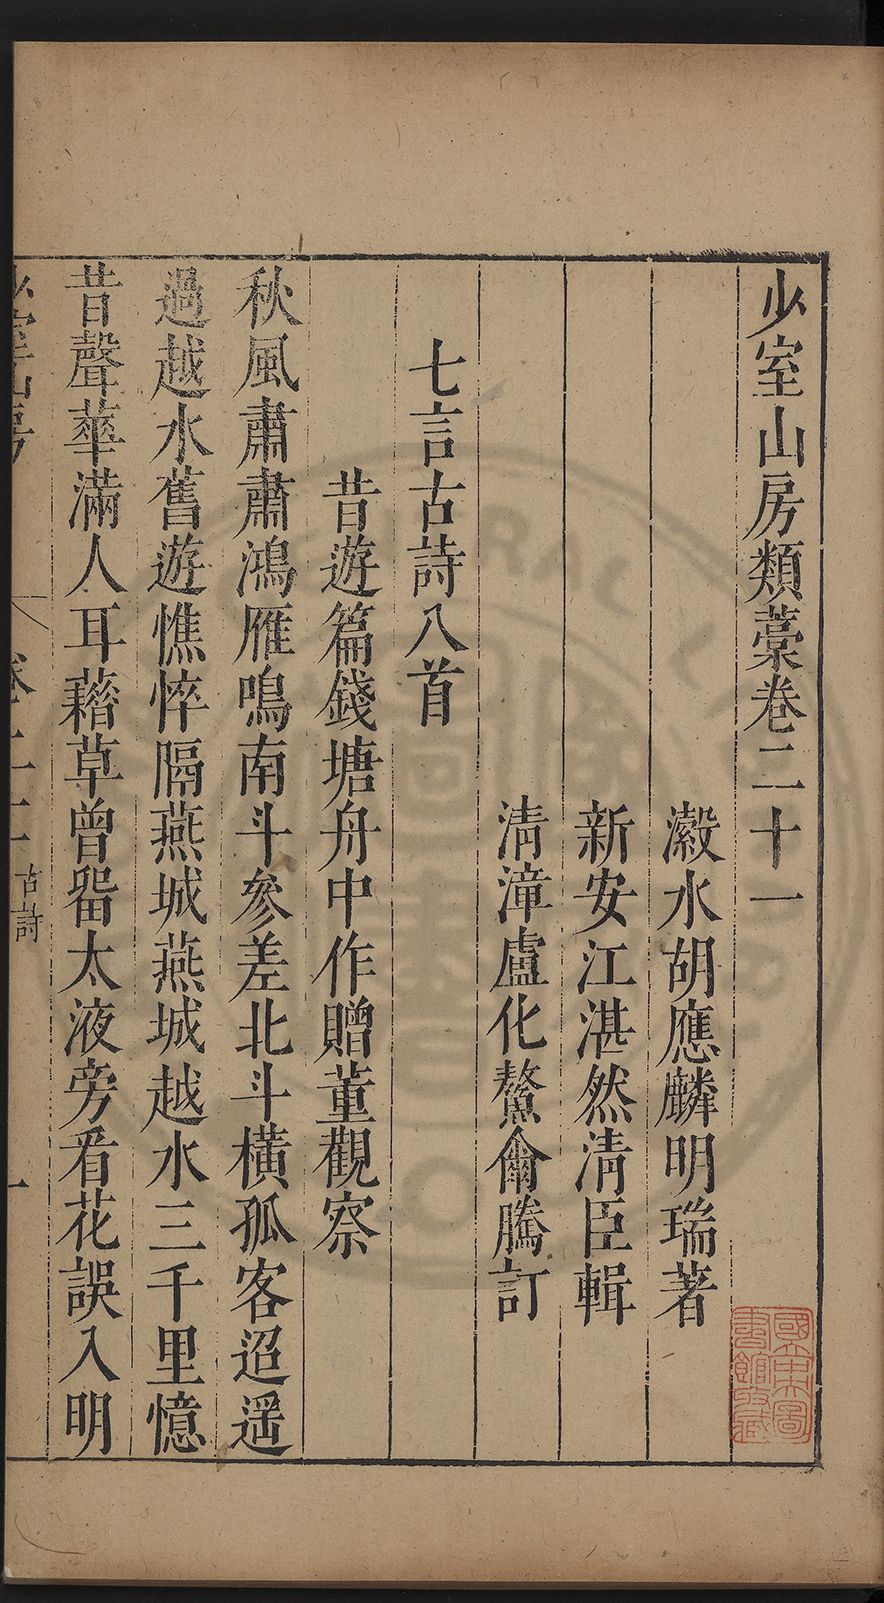 少室山房類藁卷二十一
瀫水胡應麟明瑞著
新安江湛然淸臣輯
淸漳盧化鰲侖騰訂
七言古詩八首
昔遊篇錢塘舟中作贈董觀察
秋風肅肅鴻雁鳴南斗參差北斗橫孤客迢遥
過越水舊遊憔悴隔燕城燕城越水三千里憶
昔聲華滿人耳藉草曾畱太液旁看花誤入明
少室山房
卷二十一
古詩
一
國立中央圖書館收藏